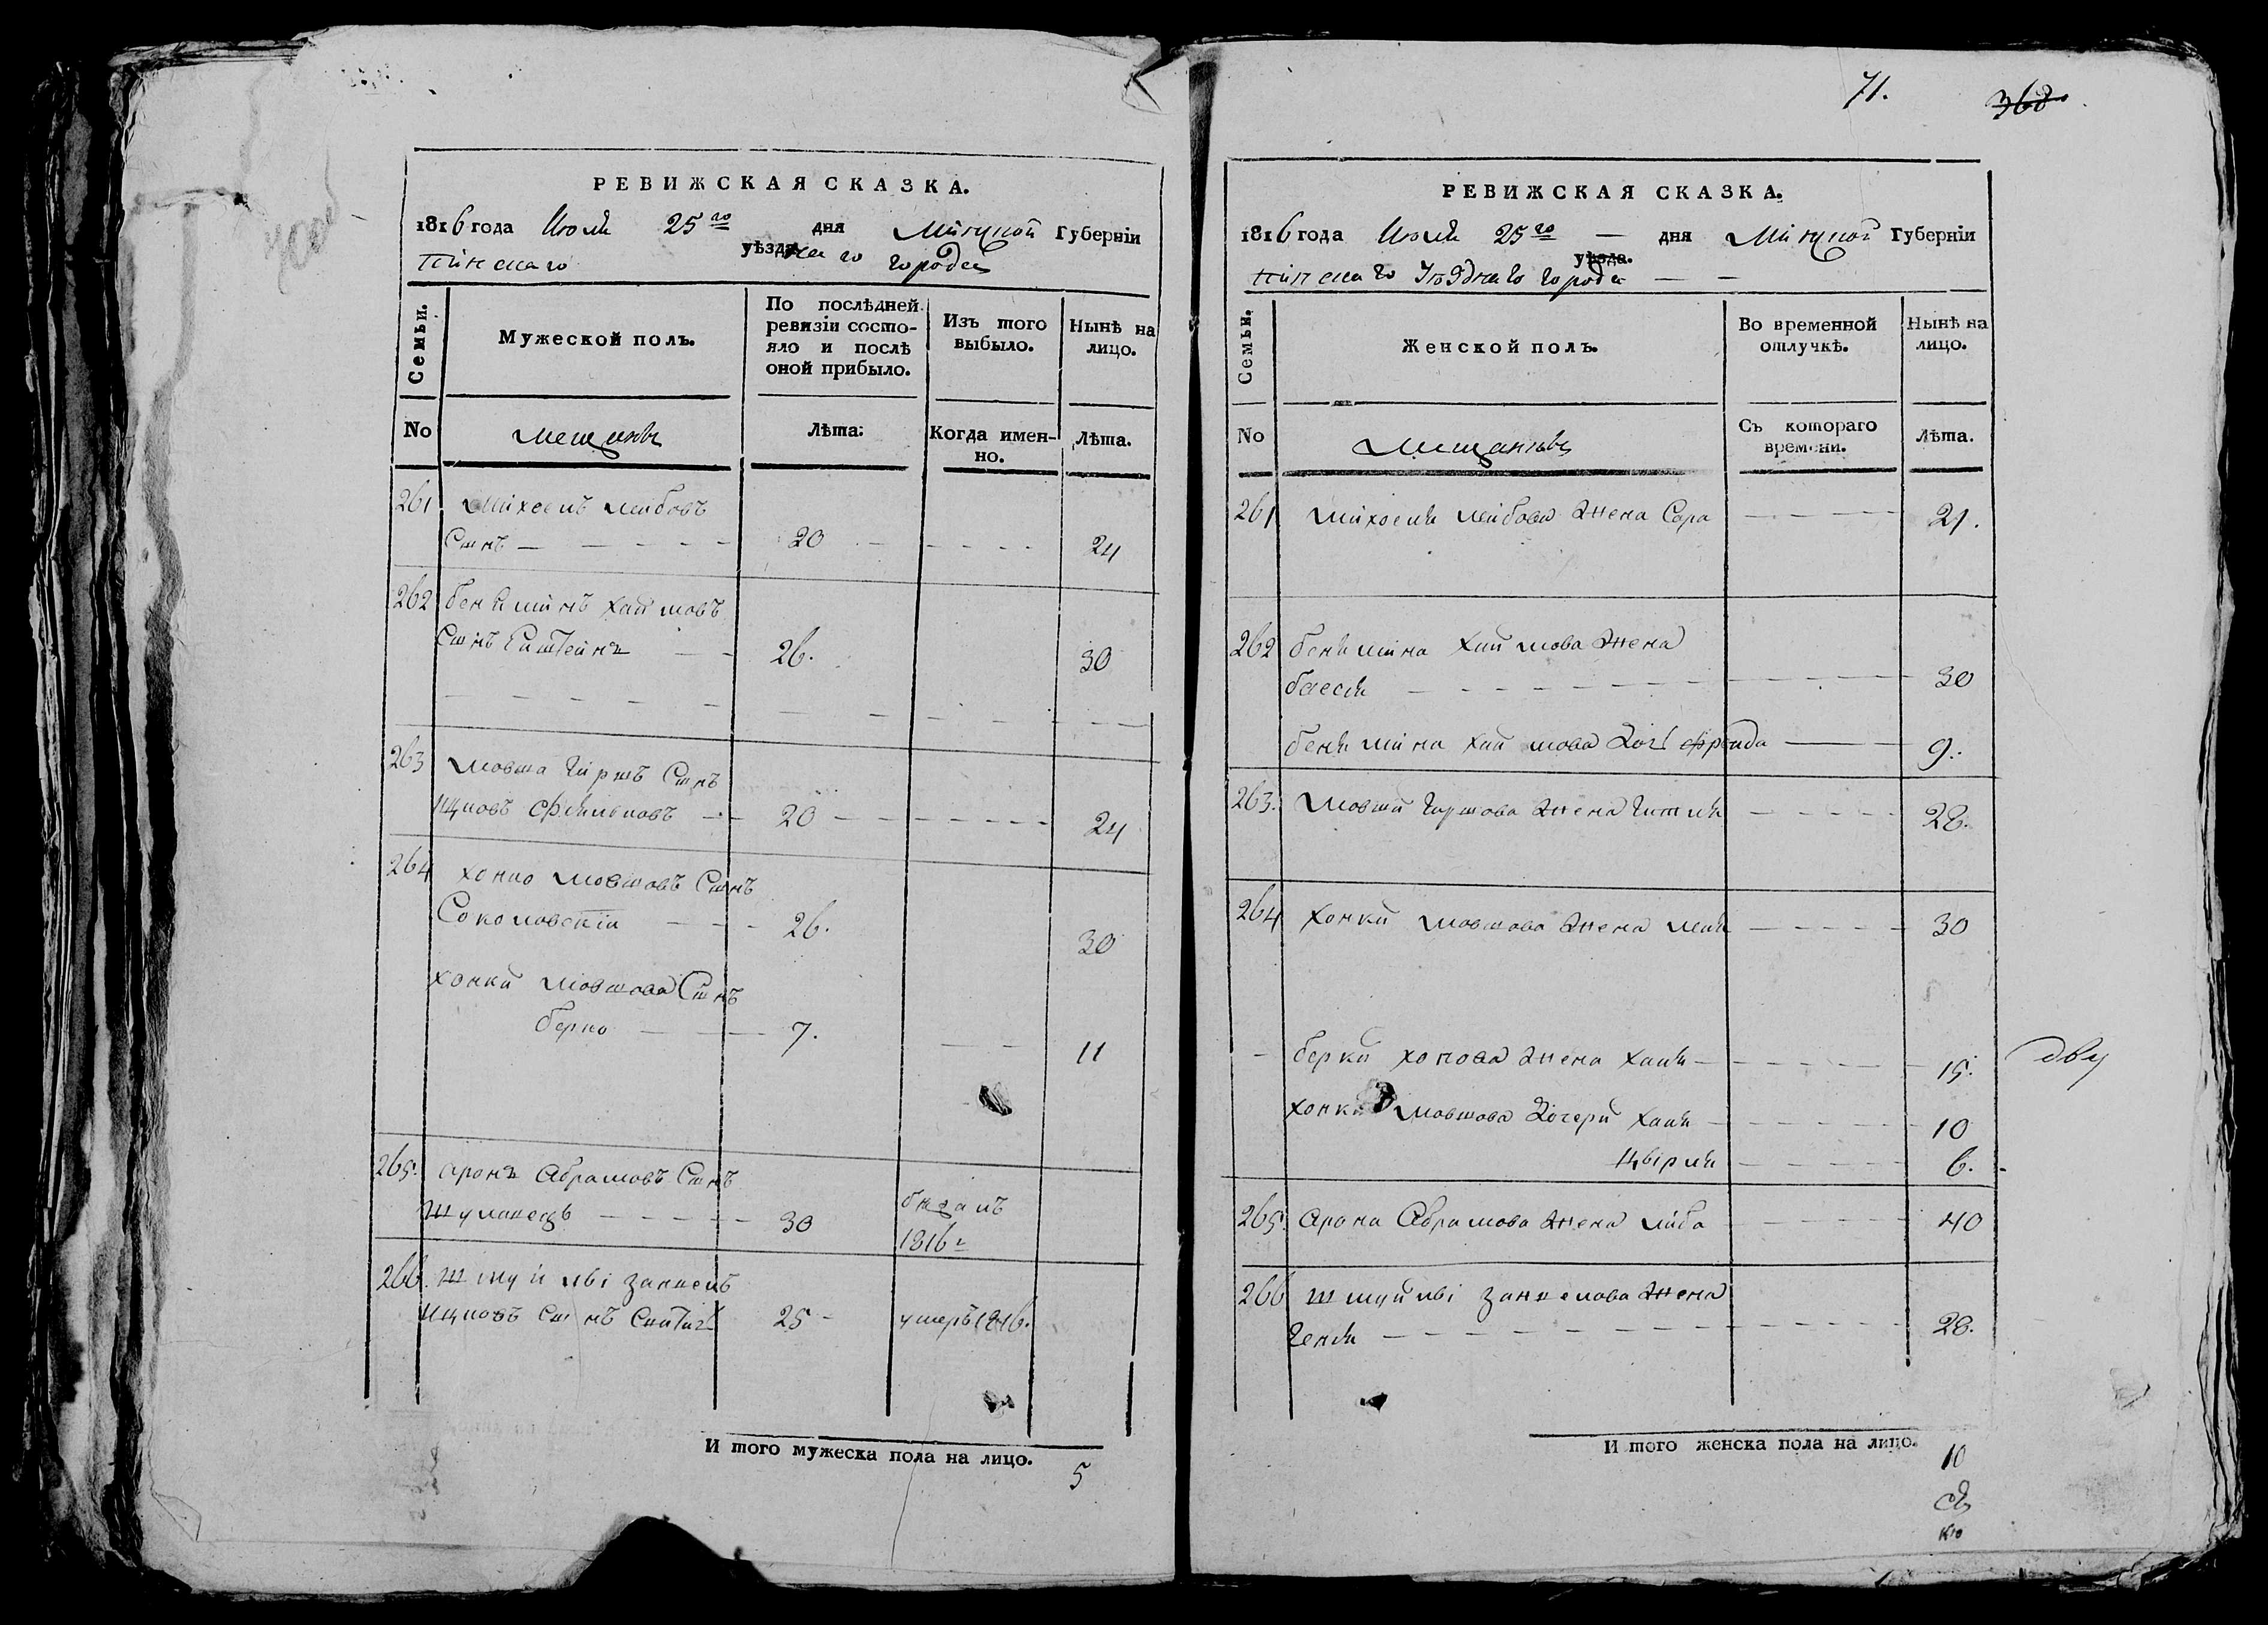 РЕВИЖСКАЯ СКАЗКА.
1816 года Июля 25го дня Минской Губернїи
Пинскаго уѣзднаго города
Семьи.
Мужеской полъ.
По послѣдней ревизїи состо-
яло и послѣ
оной прибыло.
Изъ того
выбыло.
Нынѣ на
лицо.
No
мещанъ
Лѣта.
Когда имен-
но.
Лѣта.
261 Михоель Лейбовъ
Сынъ 20 24
262 Бенѣминъ Хаимовъ
Сынъ 26. 30
263 Мовша Гиршъ Сынъ
Ицковъ 20 24
264 Хонко Мовшовъ Сынъ
Соколовскїи 26. 30
Хонки Мовшова Сынъ
Берко 7. 11
265. Аронъ Абрамовъ Сынъ
30 бѣжалъ
1816г
266. Шмуйлвї Занвель
Ицковъ Сынъ 25 умеръ 1816.
И того мужеска пола на лицо. 5
71.
368
РЕВИЖСКАЯ СКАЗКА.
1816 года Июля 25го дня Минской Губернїи
уѣзда.
Пинскаго Уѣзднаго города
Семьи.
Женской полъ.
Во временной
отлучкѣ.
Нынѣ на
лицо.
No
мещанъ
Съ котораго
времени.
Лѣта.
261 Михоеля Лейбова Жена Сара 21.
262 Бенѣмина Хаимова Жена
Бася 30
Бенѣмина Хаимова Дочь Фрейда 9.
263. Мовши Гиршова Жена Гитля 28.
264 Хонки Мовшова Жена Лея 30
Берки Хонова Жена Хая 15.
Хонки Мовшова Дочери Хая 10
Цвирля 6.
265. Арона Абрамова Жена Либа 40
266 Шмуйлвї Занвелова Жена
Геня 28.
И того женска пола на лицо. 10